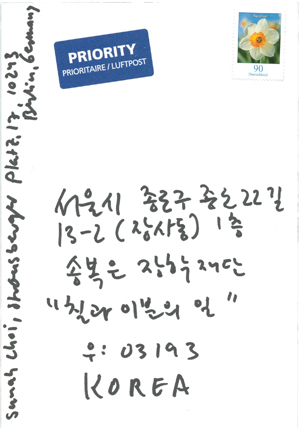 Sunah Choi, Strausberger Platz. 17, 10243
Berlin, Germany
PRIORITY
PRIORITAIRE / LUFTPOST
90
Deutschland
서울시 종로구 종로22길
13-2 (장사동) 1층
송복은 장학재단
"칠과 이분의 일"
우: 03193
KOREA